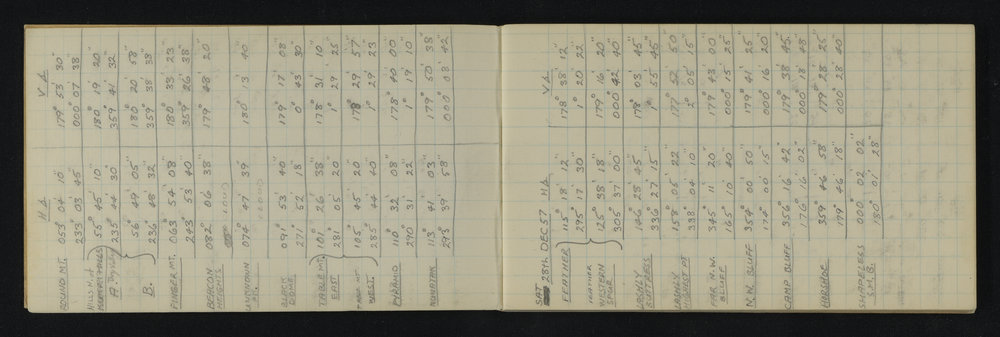 H∆. V∆.
ROUND MT. 053° 04' 10" 179° 53' 30"
233 03 45 000° 07 38
HILLS N. of
55° 45' 10" 180° 19' 20"
A. 235° 44 30 359° 41' 32"
56° 49' 05" 180° 20' 58"
B. 236° 48 32 359° 38' 38"
FINGER MT. 063° 54 08 180° 33' 23"
243 53 40 359° 26' 38"
BEACON
HEIGHTS 082° 06 38" 179° 48' 20"
UNKNOWN
PT. 074° 47' 39" 180° 13' 40"
091° 53' 40" 179° 17' 08"
271 52 18 0° 43' 30
TABLE MT. 101° 26' 38 178° 31' 10"
EAST 281° 05' 20 1° 29' 25"
TABLE MT. 105° 45' 20 178° 29' 57"
WEST. 285° 44 40 1° 29' 23
PYRAMID 110° 32' 08" 178° 40' 00"
290° 31 22 1° 19' 10"
NUNATAK 113 41 03" 179° 50' 38
293° 39' 58" 000° 08' 42"
SAT 28th DEC 57 H∆ V∆.
FEATHER 115° 18' 12" 178° 38' 12"
295° 17 30" 1° 20' 22
FEATHER
WESTERN
SPUR 125° 38' 18 179° 16 20"
305° 37' 00 000° 42 40
LASHLY
BUTTRESS 146° 28' 45 178° 03' 45"
326° 27 15" 55' 45"
LASHLY
158° 05' 22 177° 52' 50"
338° 04' 10" 2° 05' 15"
FAR N.W.
BLUFF 345° 11' 20" 179° 43' 00
165° 10' 40" 000° 15' 25"
N.W. BLUFF 354° 00' 50" 179° 41' 25"
174° 00' 15" 000° 16' 20
CAMP BLUFF 356° 16' 42" 179° 38' 45"
176° 16' 02" 000° 18' 48
359° 46' 58" 179° 28' 22"
179° 46' 18" 000° 28' 40"
SHAPELESS
S.M.B. 000° 02 02"
180° 01' 28"